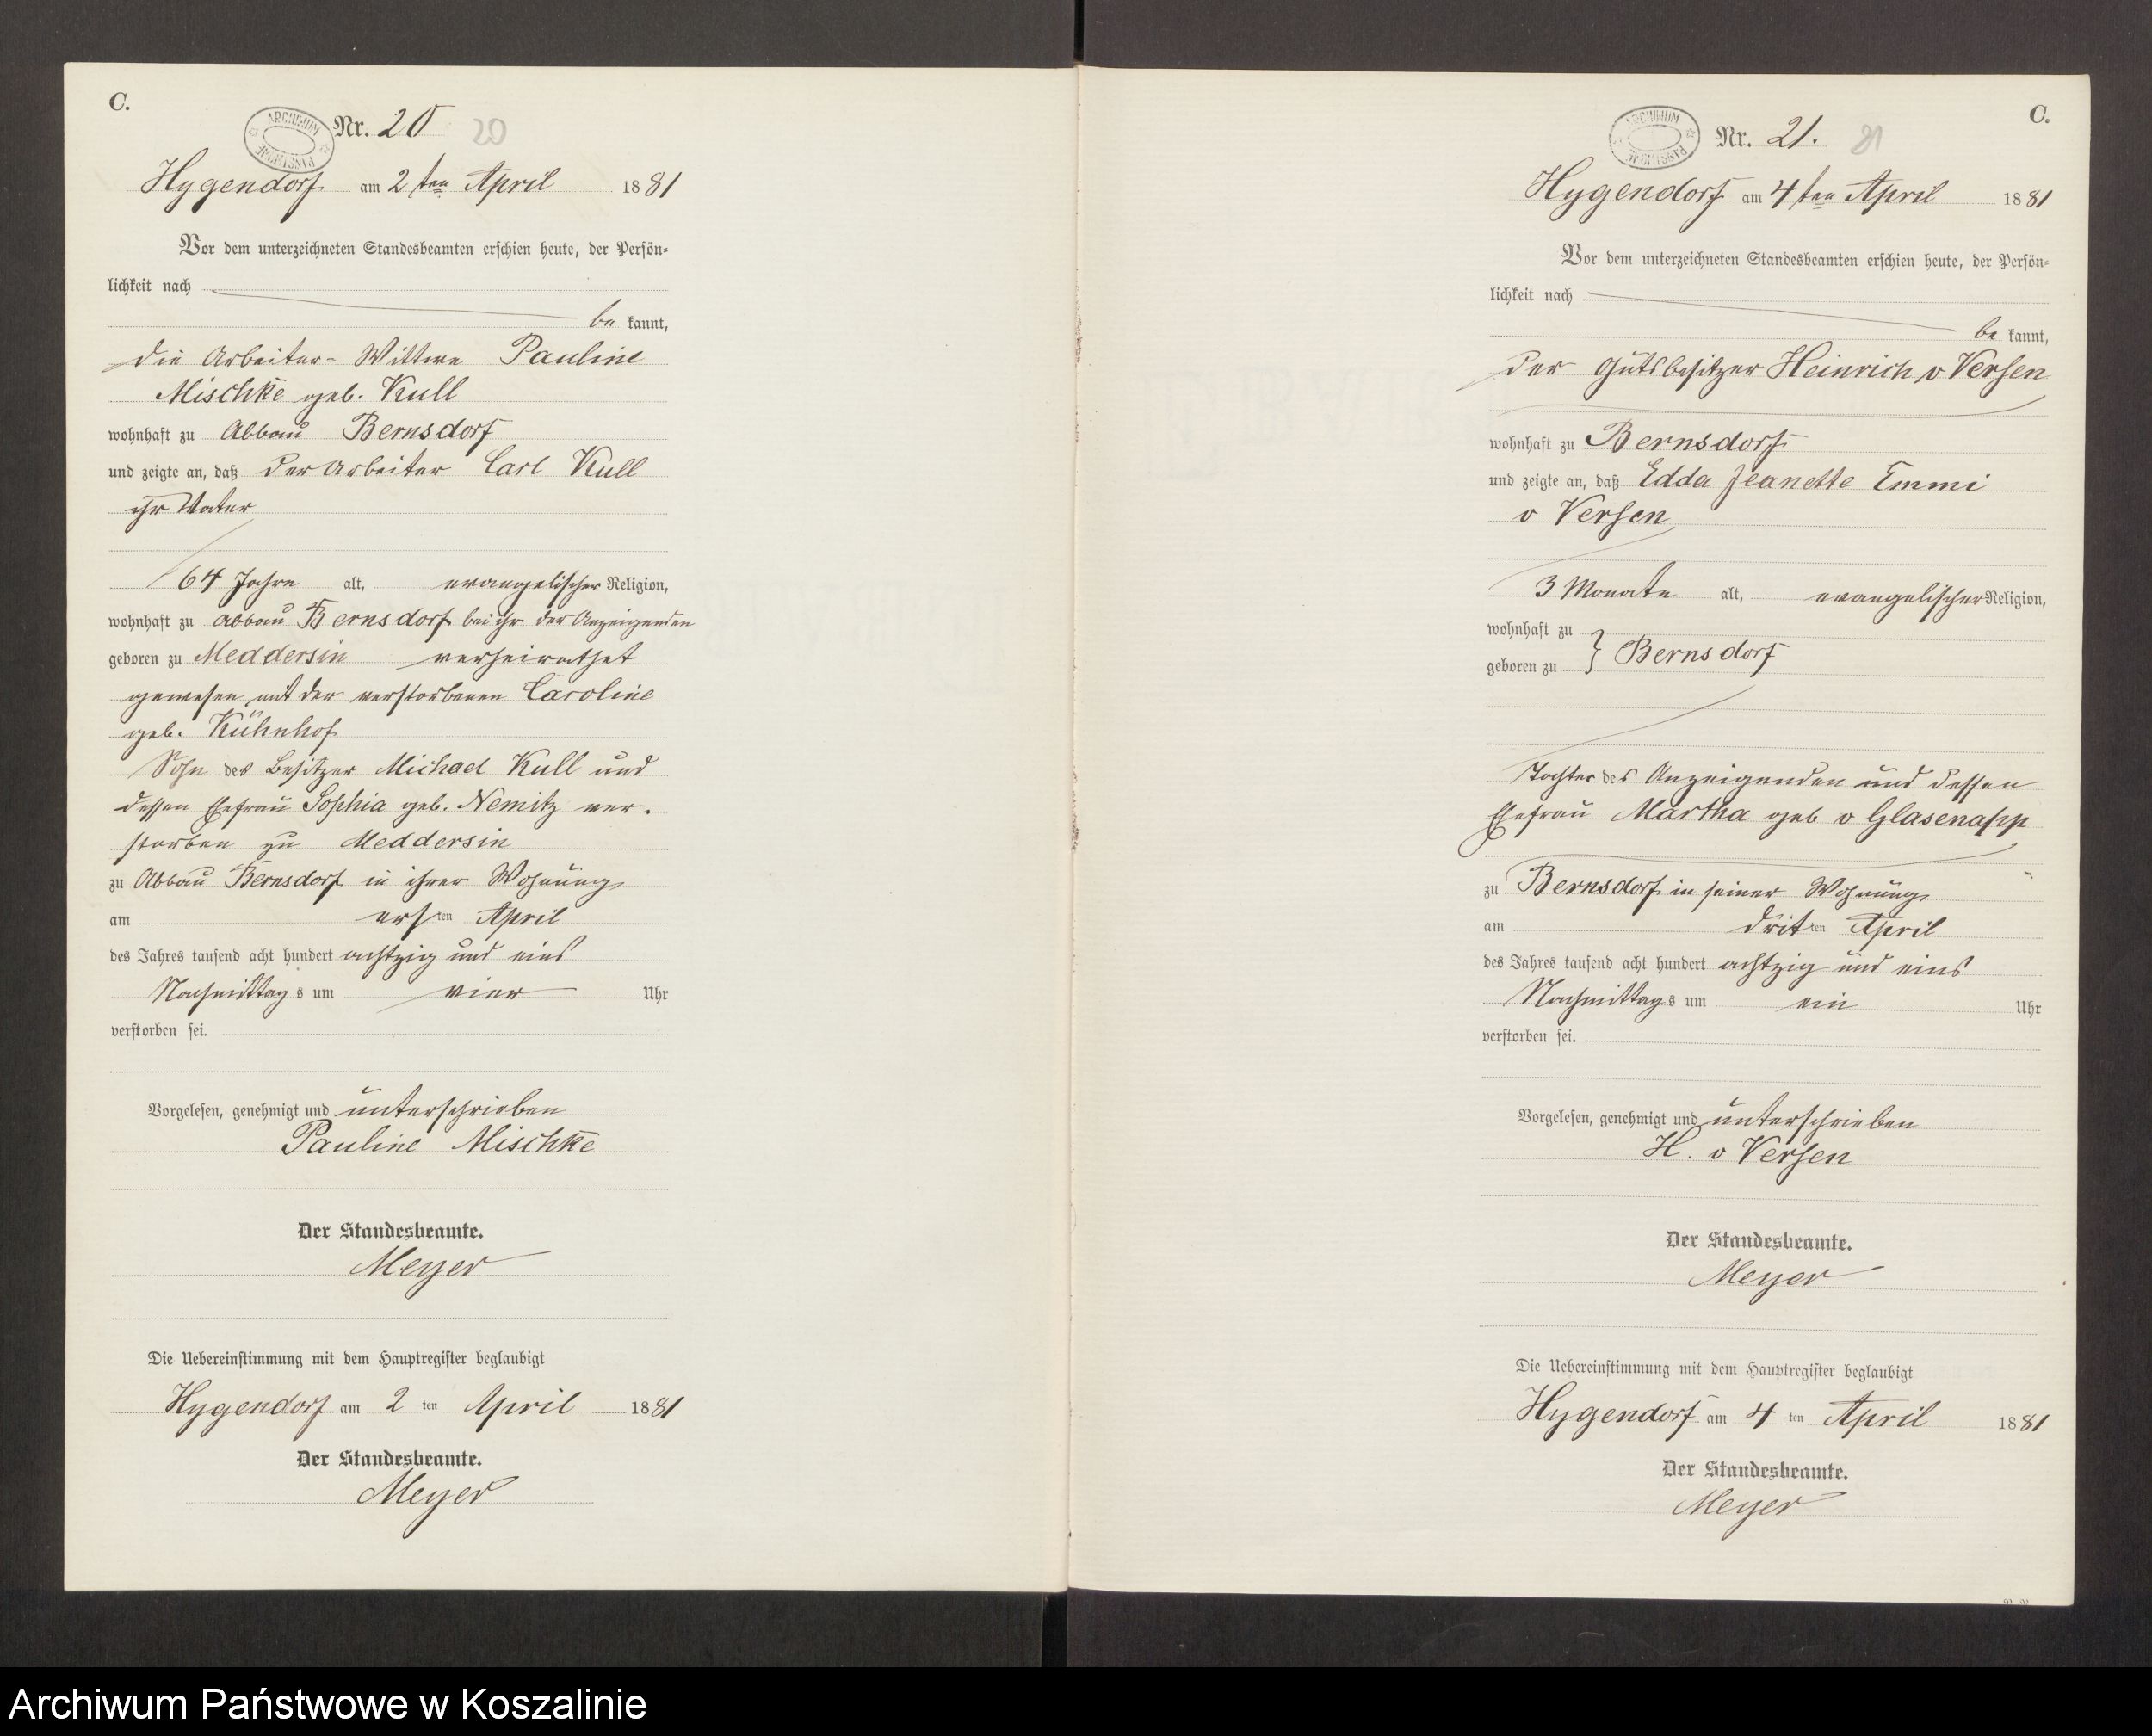 C.
Nr. 20 20
ARCHIWUM PAŃSTWOWE
Hygendorf am 2ten April 1881
Vor dem unterzeichneten Standesbeamten erschien heute, der Persön-
lichkeit nach
be kannt,
die Arbeiter-Wittwe Pauline
Mischke geb. Kull
wohnhaft zu Abbau Bernsdorf
und zeigte an, daß der Arbeiter Carl Kull
ihr Vater
64 Jahre alt, evangelischer Religion,
wohnhaft zu Abbau Bernsdorf bei ihr der Anzeigenden
geboren zu Meddersin verheirathet
gewesen mit der verstorbenen Caroline
geb. Kühnhof
Sohn des Besitzer Michael Kull und
dessen Ehefrau Sophia geb. Nemitz ver.
storben zu Meddersin
zu Abbau Bernsdorf in ihrer Wohnung
am ersten April
des Jahres tausend acht hundert achtzig und eins
Nachmittags um vier Uhr
verstorben sei.
Vorgelesen, genehmigt und unterschrieben
Pauline Mischke
Der Standesbeamte.
Meyer
Die Uebereinstimmung mit dem Hauptregister beglaubigt
Hygendorf am 2 ten April 1881
Der Standesbeamte.
Meyer
C.
Nr. 21. 21
ARCHIWUM PAŃSTWOWE
Hygendorf am 4ten April 1881
Vor dem unterzeichneten Standesbeamten erschien heute, der Persön-
lichkeit nach
be kannt,
der Gutsbesitzer Heinrich v Versen
wohnhaft zu Bernsdorf
und zeigte an, daß Edda Jeanette Emmi
v Versen
3 Monate alt, evangelischer Religion,
wohnhaft zu
geboren zu } Bernsdorf
Tochter des Anzeigenden und dessen
Ehefrau Martha geb v Glasenapp
zu Bernsdorf in seiner Wohnung
am dritten April
des Jahres tausend acht hundert achtzig und eins
Nachmittags um ein Uhr
verstorben sei.
Vorgelesen, genehmigt und unterschrieben
H. v Versen
Der Standesbeamte.
Meyer
Die Uebereinstimmung mit dem Hauptregister beglaubigt
Hygendorf am 4 ten April 1881
Der Standesbeamte.
Meyer
Archiwum Państwowe w Koszalinie